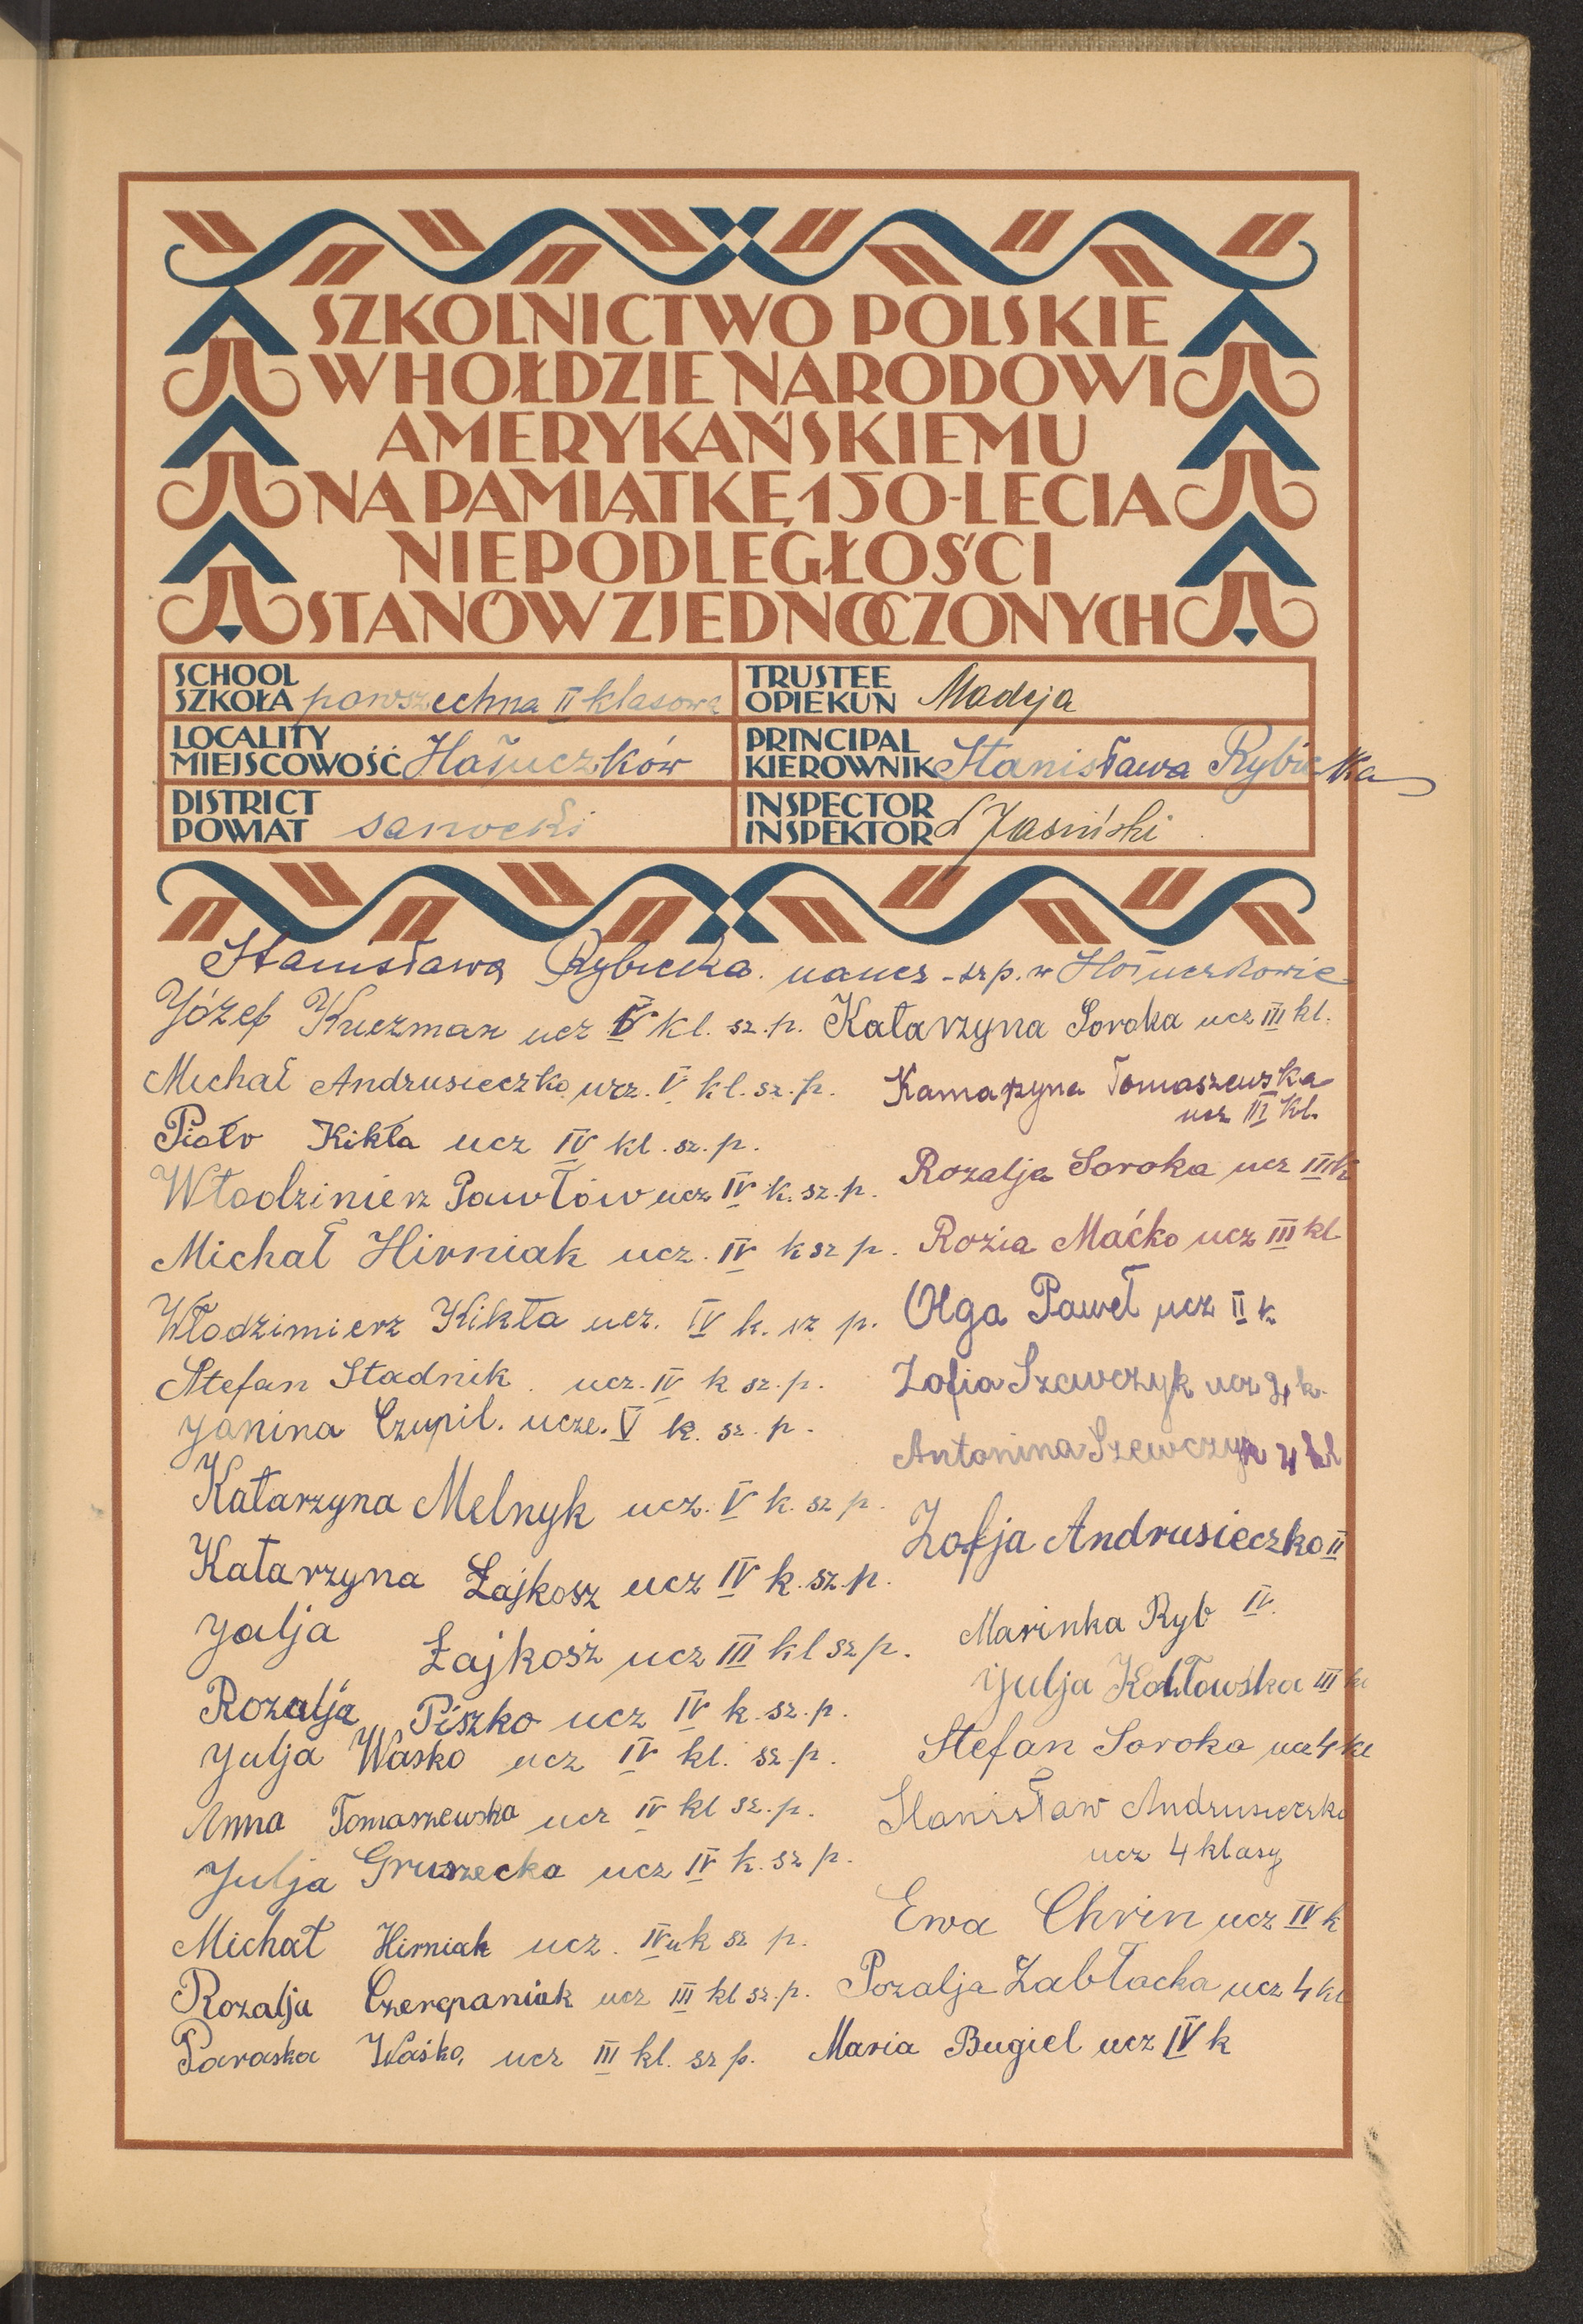 SZKOLNICTWO POLSKIE
W HOŁDZIE NARODOWI
AMERYKAŃSKIEMU
NA PAMIĄTKĘ 150-LECIA
NIEPODLEGŁOŚCI
STANÓW ZJEDNOCZONYCH
SCHOOL
SZKOŁA powszechna II klasowa
TRUSTEE
OPIEKUN Madeja
LOCALITY
MIEJSCOWOŚĆ Hołuczków
PRINCIPAL
KIEROWNIK Stanisława Rybicka
DISTRICT
POWIAT sanocki
INSPECTOR
INSPEKTOR Jasiński
Stanisława Rybicka naucz - sz p. w Hołuczkowie
Józef Kuczman ucz V kl. sz. p.
Michał Andrusieczko ucz. V kl. sz. p.
Piotr Kikła ucz IV kl. sz. p.
Włodzimierz Pawłów ucz IV k. sz. p.
Michał Hirniak ucz. IV k sz p.
Włodzimierz Kikła ucz. IV k. sz p.
Stefan Stadnik ucz. IV k sz. p.
Janina Czupil. ucze. V k. sz. p.
Katarzyna Melnyk ucz. V k. sz p.
Katarzyna Łajkosz ucz IV k. sz. p.
Julja Łajkosz ucz III kl sz p.
Rozalja Piszko ucz IV k. sz. p.
Julja Wasko ucz IV kl. sz. p.
Anna Tomaszewska ucz IV kl sz. p.
Julja Gruszecka ucz IV k. sz p.
Michał Hirniak ucz. IV k sz p.
Rozalja Czerepaniak ucz III kl sz. p.
Paraska Waśko, ucz III kl. sz p.
Katarzyna Soroka ucz III kl.
Kamarzyna Tomaszewska
ucz III kl.
Rozalja Soroka ucz III k
Rozia Maćko ucz III kl
Olga Paweł ucz II k
Zofia Szewczyk ucz 4 k.
Antonina Szewczyk 4 kl
Zofja Andrusieczko II
Marinka Ryb IV.
Julja Kozłowska III kl
Stefan Soroka ucz 4 kl
Stanisław Andrusieczko
ucz 4 klasy
Ewa Chrin ucz IV k
Pozalja Zabłacka ucz 4 kl
Maria Bugiel ucz IV k